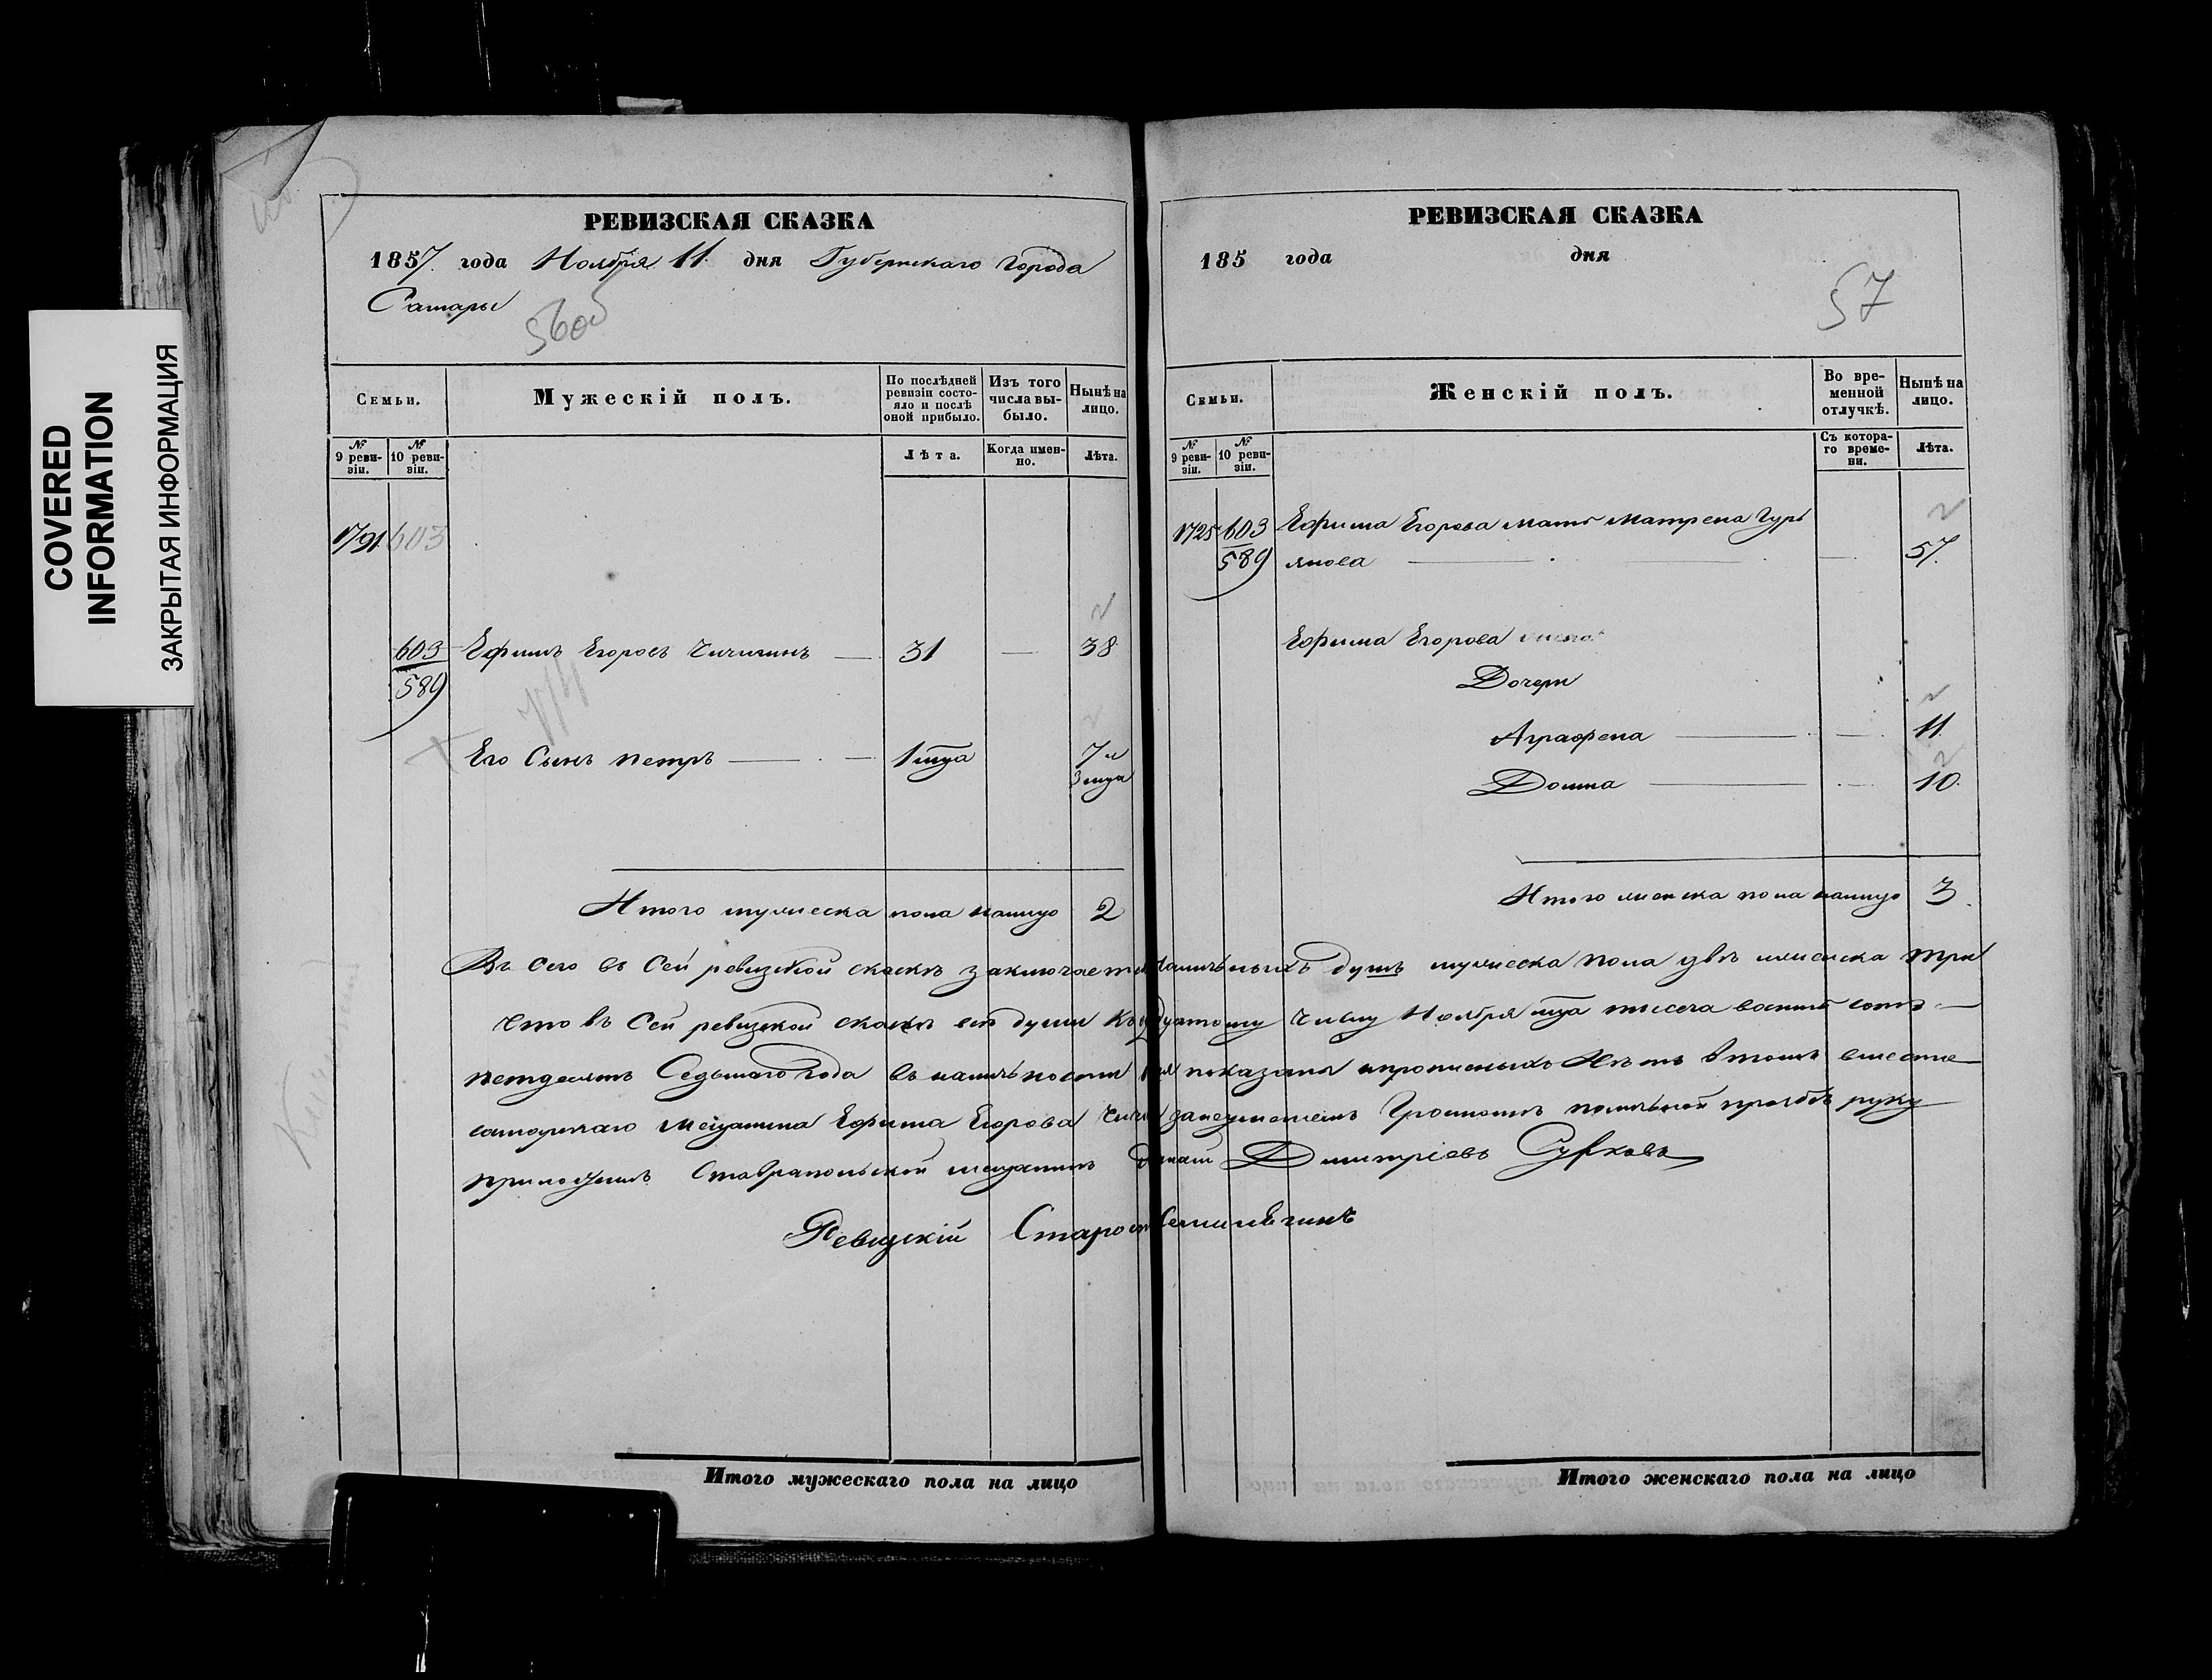 COVERED
INFORMATION
ЗАКРЫТАЯ ИНФОРМАЦИЯ
РЕВИЗСКАЯ СКАЗКА
1857. года Ноября 11 дня Губернскаго Города
Самары
Семьи.
Мужескій полъ.
По послѣдней ревизіи состояло и послѣ оной прибыло.
Изъ того числа выбыло.
Нынѣ на лицо.
№ 9 ревизіи.
№ 10 ревизіи.
Лѣта.
Когда именно.
Лѣта.
1791 603
603 Ефимъ Егоровъ Чичигинъ — 31 — 38
589
Его Сынъ петръ — 1 мца 7 л
3 мца
Итого мужеска пола налицо 2
РЕВИЗСКАЯ СКАЗКА
185 года дня
57
Семьи.
Женскій полъ.
Во временной отлучкѣ.
Нынѣ на лицо.
№ 9 ревизіи.
№ 10 ревизіи.
Съ котораго времени.
Лѣта.
1725 603 Ефима Егорова мать матрена Гурь
589 янова — 57.
Ефима Егорова
Дочери
Аграфена — 11
Домна — 10.
Итого женска пола налицо 3
Въ сей ревизской скаскѣ заключается наличныхъ душъ мужеска пола двѣ женска три
Что въ Сей ревизской скаскѣ всѣ души къ числу Ноября мца тысеча восемь сотъ
петдесятъ Седьмаго года въ наличности показаны и прописныхъ Нѣтъ Втомъ вместе
самарскаго мещанина Ефима Егорова занеуменіемъ Грамотъ поличной прозбѣ руку
приложилъ Ставрапольской мещанинъ Дмитріевъ Сурковъ
Ревизскій Староста
Итого мужескаго пола на лицо
Итого женскаго пола на лицо